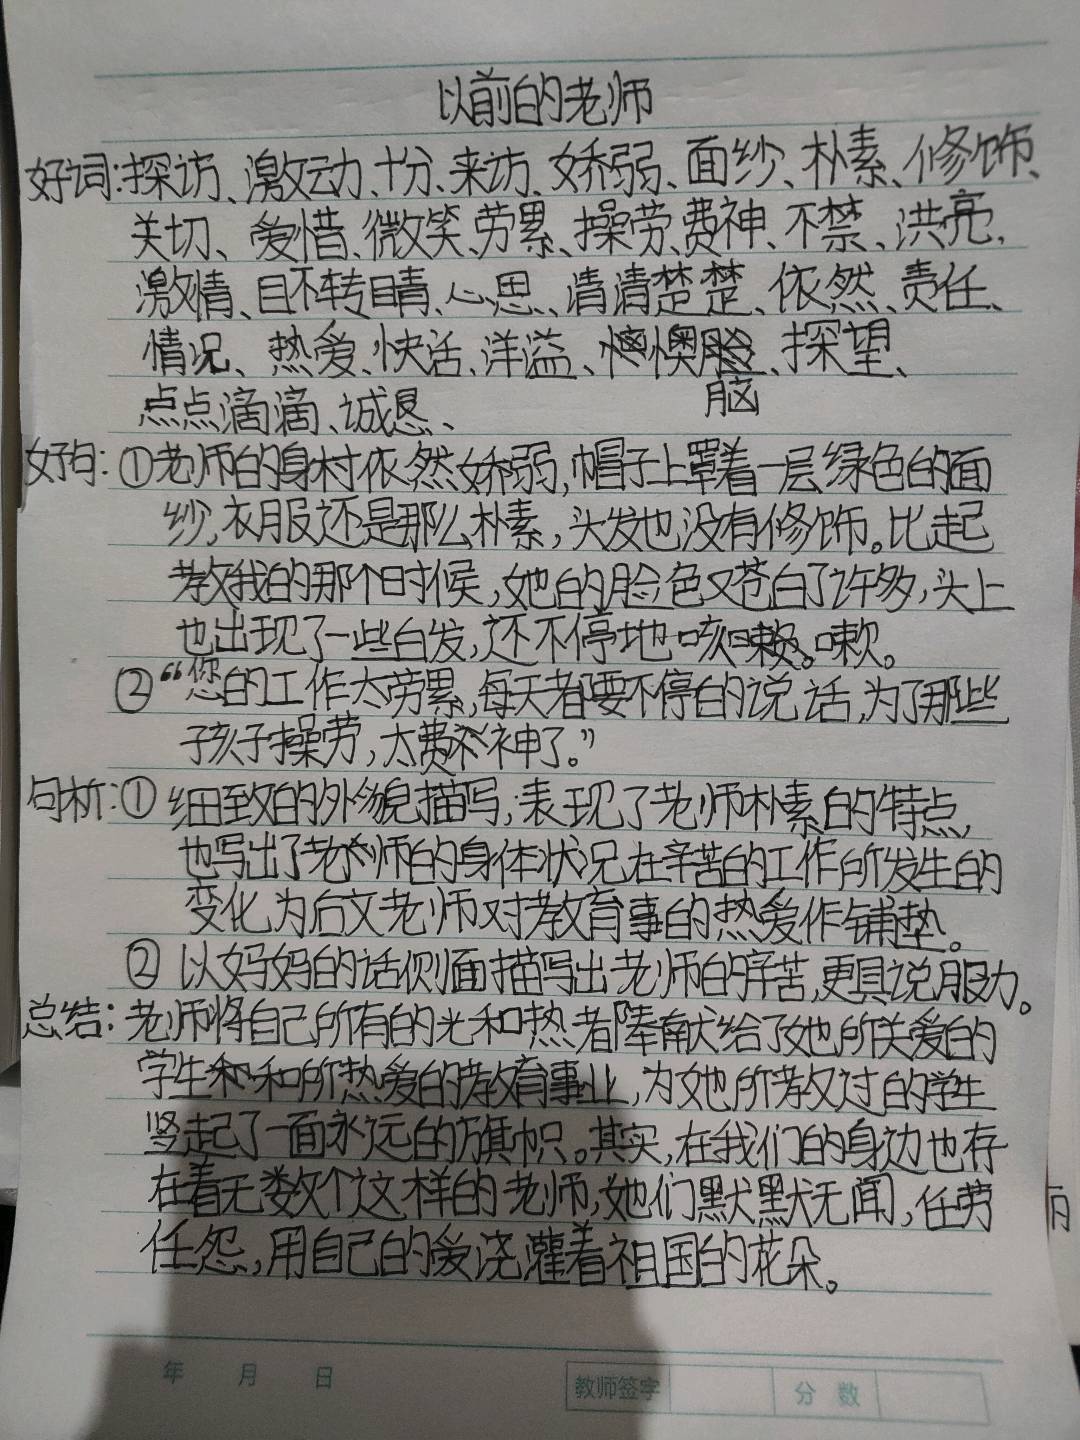 以前的老师
好词:探访、激动、十分、来访、娇弱、面纱、朴素、修饰、
关切、爱惜、微笑、劳累、操劳、费神、不禁、洪亮,
激情、目不转睛、心思、清清楚楚、依然、责任、
情况、热爱、快活、洋溢、懊、探望、
脑
点点滴滴、诚恳、
好句:①老师的身材依然娇弱,帽子上罩着一层绿色的面
纱,衣服还是那么朴素,头发也没有修饰。比起
教我的那个时候,她的脸色又苍白了许多,头上
也出现了一些白发,还不停地咳嗽。
②“您的工作太劳累,每天都要不停的说话,为了那些
孩子操劳,太费神了。”
句析:①细致的外貌描写,表现了老师朴素的特点,
也写出了老师的身体状况在辛苦的工作所发生的
变化为后文老师对教育事的热爱作铺垫。
②以妈妈的话侧面描写出老师的辛苦,更具说服力。
总结:老师将自己所有的光和热都奉献给了她所关爱的
学生和所热爱的教育事业,为她所教过的学生
竖起了一面永远的旗帜。其实,在我们的身边也存
在着无数个这样的老师,她们默默无闻,任劳
任怨,用自己的爱浇灌着祖国的花朵。
年 月 日
教师签字 分数